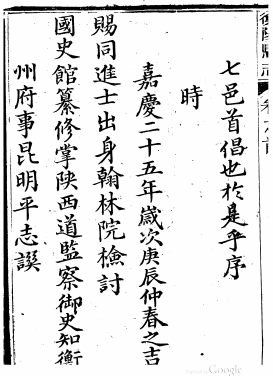 七邑首倡也於是乎序
時
嘉慶二十五年歲次庚辰仲春之吉
賜同進士出身翰林院檢討
國史館纂修掌陝西道監察御史知衡
州府事昆明平志謨
Google